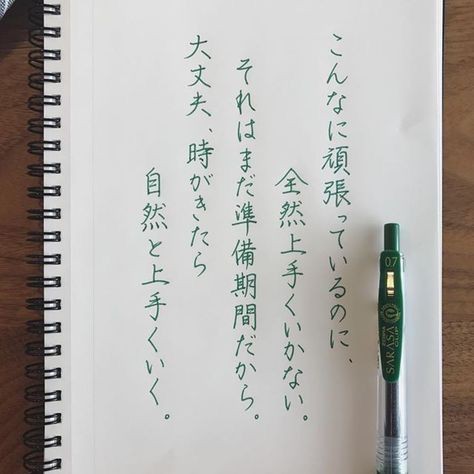 こんなに頑張っているのに、
全然上手くいかない。
それはまだ準備期間だから。
大丈夫、時がきたら
自然と上手くいく。
0.7
ZEBRA
SARASA